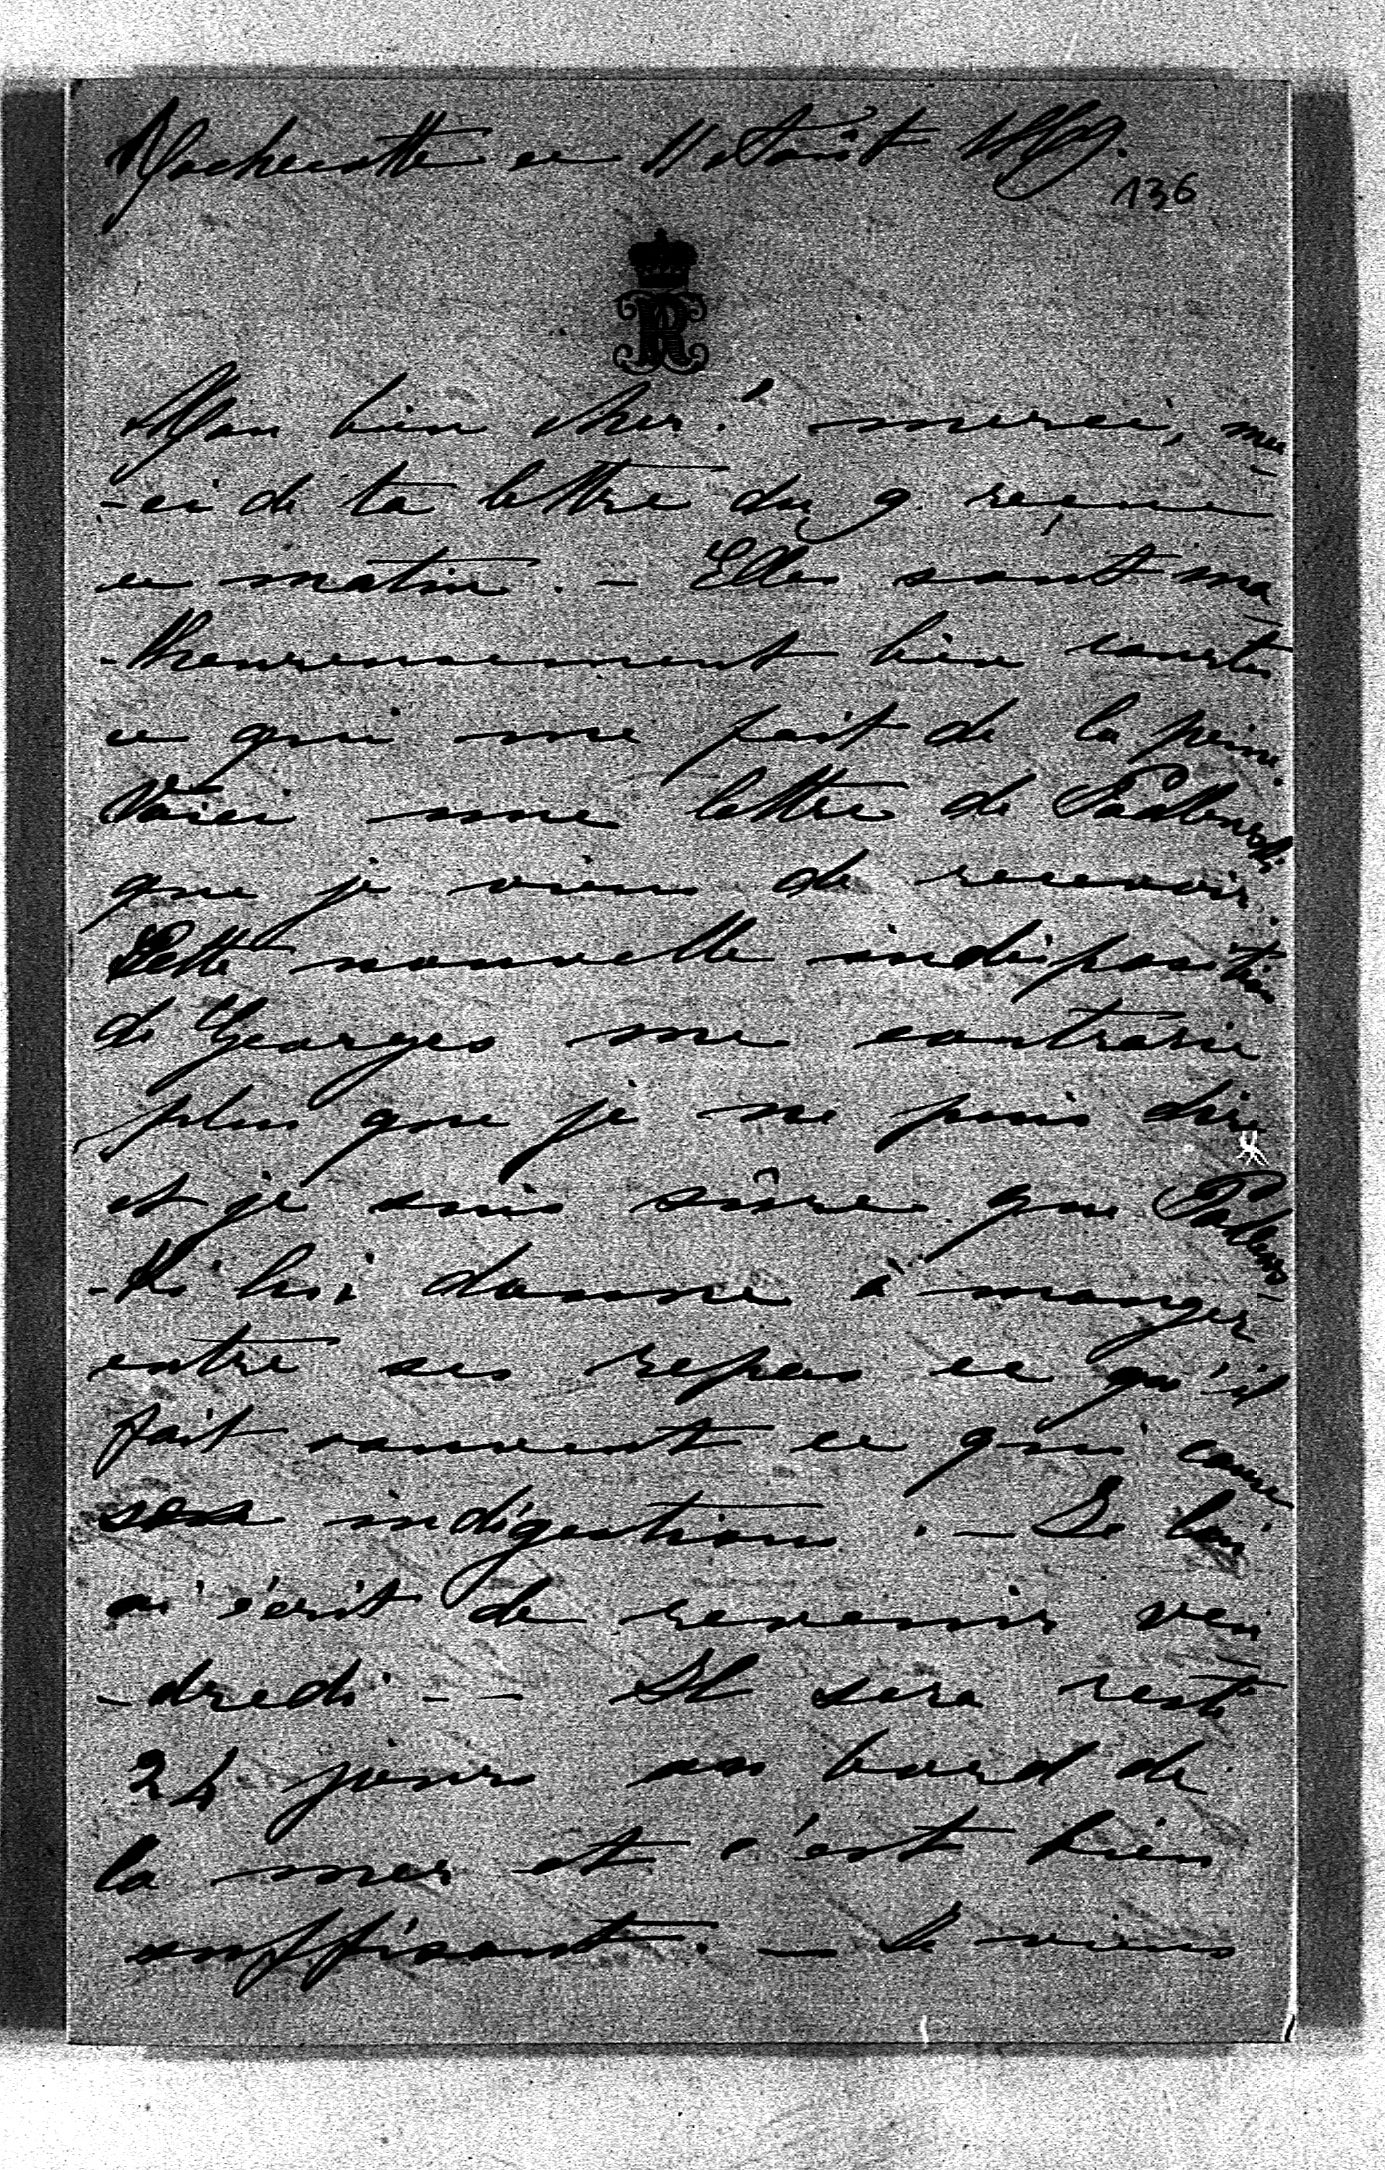 Rochecotte ce 11 Août 1869.
136
Mon bien cher! merci, mer
-ci de ta lettre du 9 reçue
ce matin. - Elles sont ma
-lheureusement bien courtes
ce qui me fait de la peine.
Voici une lettre de
que je viens de recevoir.
Cette nouvelle indisposition
de Georges me contrarie
plus que je ne puis dire
et je suis sûre que
-ki lui donne à manger
entre ses repas ce qu'il
fait souvent ce qui cause
ses indigestions. - Je lui
ai écrit de revenir ven
-dredi - - Il sera resté
24 jours au bord de
la mer et c'est bien
suffisant. - Je viens